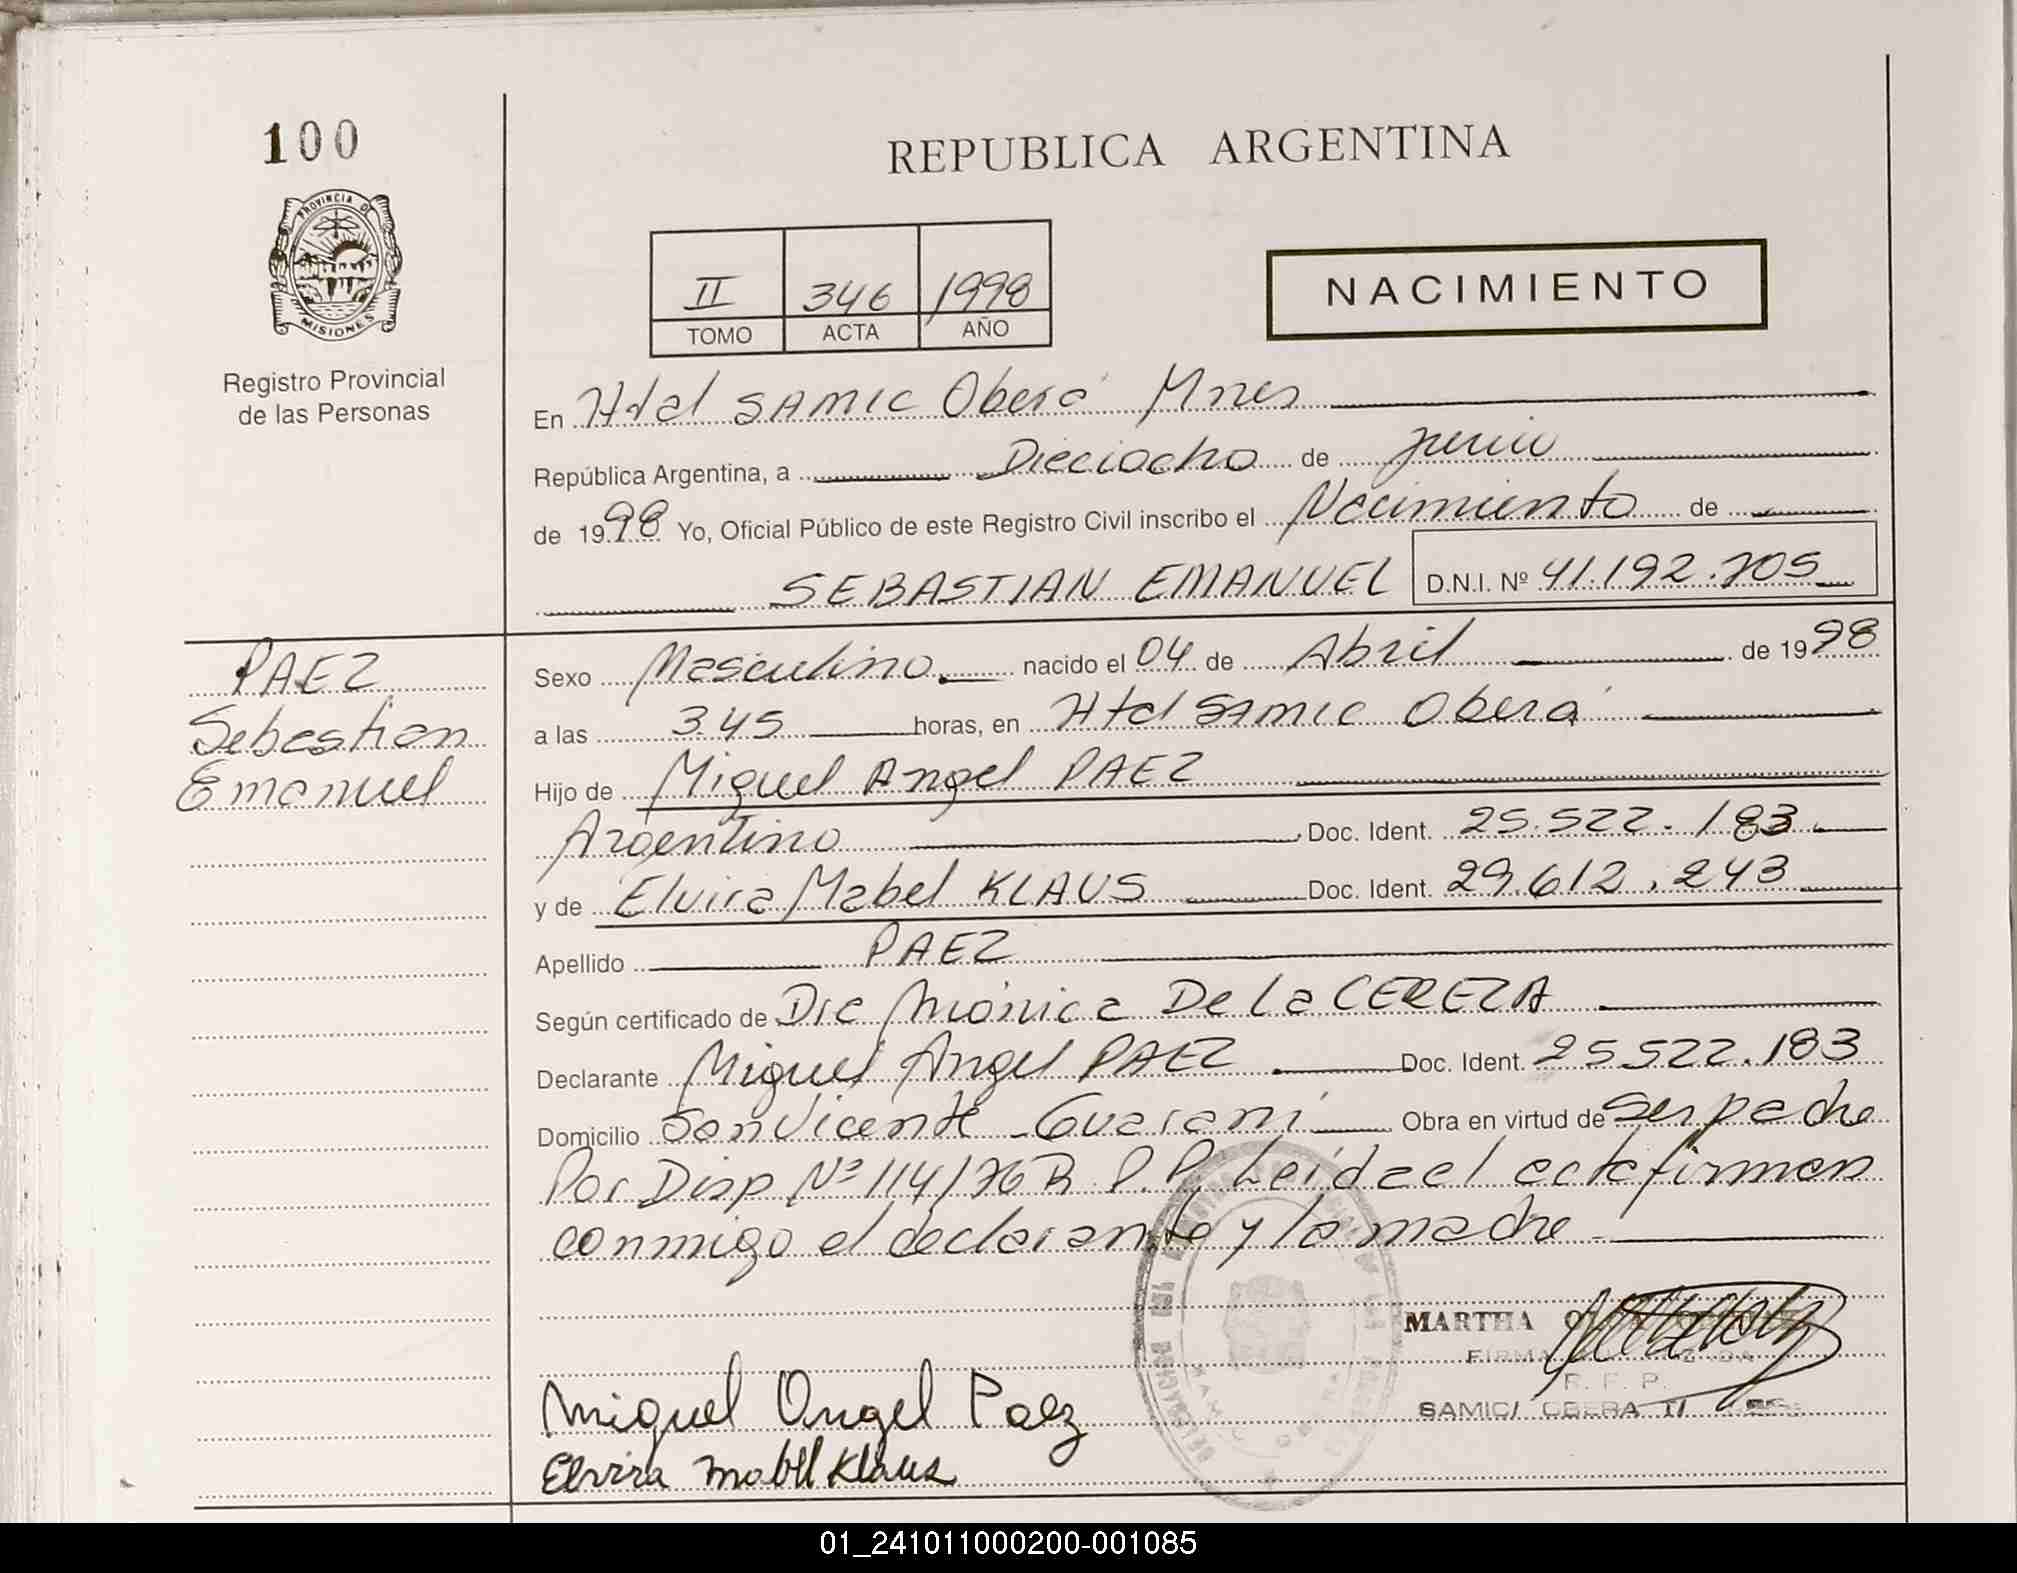 100
PROVINCIA DE
MISIONES
Registro Provincial
de las Personas
REPUBLICA ARGENTINA
II 346 1998
TOMO ACTA AÑO
NACIMIENTO
En Htal SAMIC Oberá Mnes
República Argentina, a Dieciocho de junio
de 1998 Yo, Oficial Público de este Registro Civil inscribo el Nacimiento de
SEBASTIAN EMANUEL D.N.I. Nº 41.192.705
PAEZ
Sebastian
Emanuel
Sexo Masculino nacido el 04 de Abril de 1998
a las 3.45 horas, en Htal SAMIC Oberá
Hijo de Miguel Angel PAEZ
Argentino Doc. Ident. 25.522.183
y de Elvira Mabel KLAUS Doc. Ident. 29.612.243
Apellido PAEZ
Según certificado de Dra Mónica De La CEREZA
Declarante Miguel Angel PAEZ Doc. Ident. 25522.183
Domicilio San Vicente Guaraní Obra en virtud de Ser padre
Por Disp Nº 114/76 R.P.P. Leída el acta firman
conmigo el declarante y la madre
MARTHA
FIRMA
R. F. P.
SAMIC/ OBERA
Miguel Angel Paez
Elvira Mabel Klaus
01_241011000200-001085